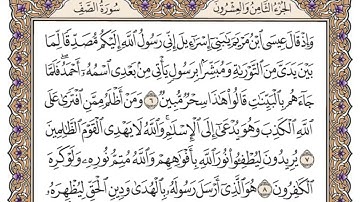 الجزء الثامن والعشرون
سورة الصف
وَإِذْ قَالَ عِيسَى ٱبْنُ مَرْيَمَ يَٰبَنِىٓ إِسْرَٰٓءِيلَ إِنِّى رَسُولُ ٱللَّهِ إِلَيْكُم مُّصَدِّقًا لِّمَا
بَيْنَ يَدَىَّ مِنَ ٱلتَّوْرَىٰةِ وَمُبَشِّرًۢا بِرَسُولٍ يَأْتِى مِنۢ بَعْدِى ٱسْمُهُۥٓ أَحْمَدُ فَلَمَّا
جَآءَهُم بِٱلْبَيِّنَٰتِ قَالُوا۟ هَٰذَا سِحْرٌ مُّبِينٌ ٦ وَمَنْ أَظْلَمُ مِمَّنِ ٱفْتَرَىٰ عَلَى
ٱللَّهِ ٱلْكَذِبَ وَهُوَ يُدْعَىٰٓ إِلَى ٱلْإِسْلَٰمِ وَٱللَّهُ لَا يَهْدِى ٱلْقَوْمَ ٱلظَّٰلِمِينَ
٧ يُرِيدُونَ لِيُطْفِـُٔوا۟ نُورَ ٱللَّهِ بِأَفْوَٰهِهِمْ وَٱللَّهُ مُتِمُّ نُورِهِۦ وَلَوْ كَرِهَ
ٱلْكَٰفِرُونَ ٨ هُوَ ٱلَّذِىٓ أَرْسَلَ رَسُولَهُۥ بِٱلْهُدَىٰ وَدِينِ ٱلْحَقِّ لِيُظْهِرَهُۥ